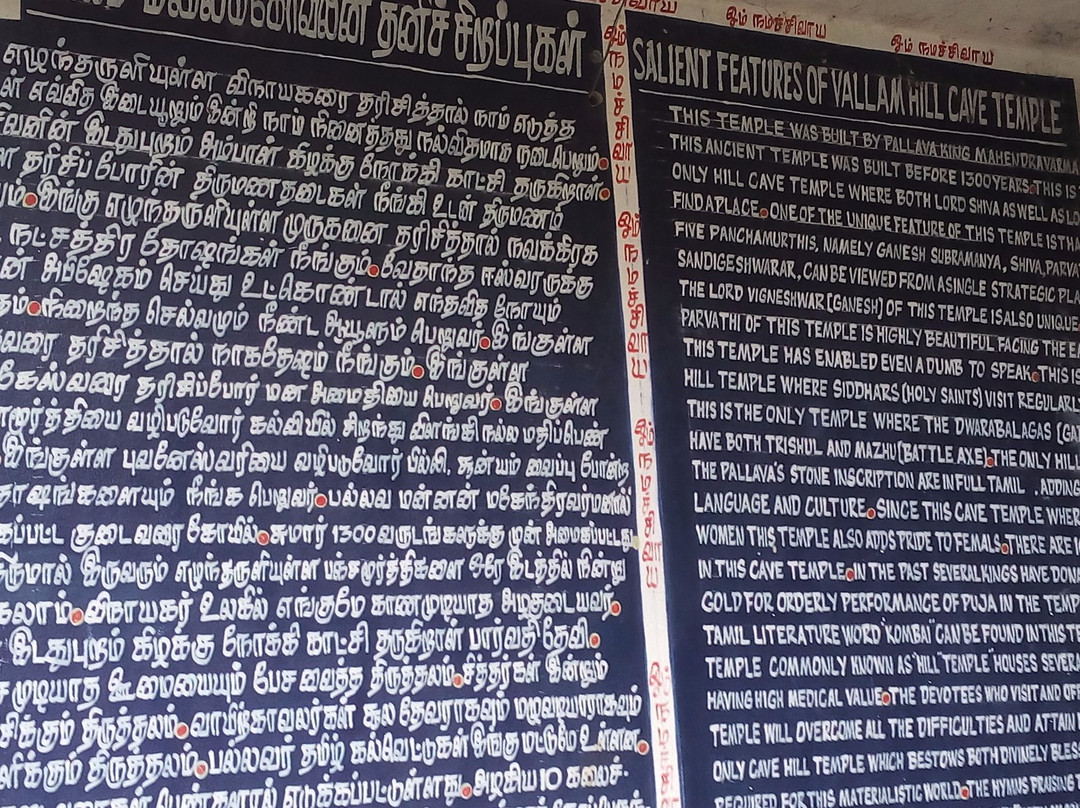 தனிச் சிறப்புகள்
எழுந்தருளியுள்ள விநாயகரை தரிசித்தால் நாம் எடுத்த
எவ்வித இடையூறும் இன்றி நாம் நினைத்தது நல்விதமாக நடைபெறும்.
இடதுபுறம் அம்பாள் கிழக்கு நோக்கி காட்சி தருகிறாள்.
தரிசிப் போரின் திருமணதடைகள் நீங்கி உடன் திருமணம்
இங்கு எழுந்தருளியுள்ள முருகனை தரிசித்தால் நவக்கிரக
நட்சத்திர தோஷங்கள் நீங்கும். வேதாந்த ஈஸ்வரருக்கு
அபிஷேகம் செய்து உட்கொண்டால் எந்தவித நோயும்
நிறைந்த செல்வமும் நீண்ட ஆயுளும் பெறுவர். இங்குள்ள
தரிசித்தால் நாகதோஷம் நீங்கும். இங்குள்ள
தரிசிப்போர் மன அமைதியை பெறுவர். இங்குள்ள
வழிபடுவோர் கல்வியில் சிறந்து விளங்கி நல்ல மதிப்பெண்
இங்குள்ள புவனேஸ்வரியை வழிபடுவோர் பில்லி, சூன்யம் வைப்பு போன்ற
நீங்க பெறுவர். பல்லவ மன்னன் மகேந்திரவர்மனால்
குடைவரை கோயில். சுமார் 1300 வருடங்களுக்கு முன் அமைக்கப்பட்டது
இருவரும் எழுந்தருளியுள்ள பஞ்சமூர்த்திகளை ஒரே இடத்தில் நின்று
விநாயகர் உலகில் எங்குமே காணமுடியாத அழகுடையவர்.
இடதுபுறம் கிழக்கு நோக்கி காட்சி தருகிறாள் பார்வதி தேவி.
முடியாத ஊமையையும் பேச வைத்த திருத்தலம். சித்தர்கள் இன்றும்
திருத்தலம். வாயிற்காவலர்கள் சூல தேவராகவும் மழுவுடையாராகவும்
திருத்தலம். பல்லவர் தமிழ் கல்வெட்டுகள் இங்கு மட்டுமே உள்ளன.
பெண்களால் எடுக்கப்பட்டுள்ளது. அழகிய 10 கலைச்-
ஓம் நமச்சிவாய
ஓம் நமச்சிவாய
ஓம் நமச்சிவாய
ஓம் நமச்சிவாய
ஓம் நமச்சிவாய
SALIENT FEATURES OF VALLAM HILL CAVE TEMPLE
THIS TEMPLE WAS BUILT BY PALLAVA KING MAHENDRAVARMA
THIS ANCIENT TEMPLE WAS BUILT BEFORE 1300 YEARS. THIS IS
ONLY HILL CAVE TEMPLE WHERE BOTH LORD SHIVA AS WELL AS LO
FIND A PLACE. ONE OF THE UNIQUE FEATURE OF THIS TEMPLE IS THA
FIVE PANCHAMURTHIS, NAMELY GANESH SUBRAMANYA, SHIVA, PARVA
SANDIGESHWARAR, CAN BE VIEWED FROM A SINGLE STRATEGIC PLA
THE LORD VIGNESHWAR (GANESH) OF THIS TEMPLE IS ALSO UNIQUE
PARVATHI OF THIS TEMPLE IS HIGHLY BEAUTIFUL FACING THE EA
THIS TEMPLE HAS ENABLED EVEN A DUMB TO SPEAK. THIS IS
HILL TEMPLE WHERE SIDDHARS (HOLY SAINTS) VISIT REGULARL
THIS IS THE ONLY TEMPLE WHERE THE DWARABALAGAS (GAT
HAVE BOTH TRISHUL AND MAZHU (BATTLE AXE). THE ONLY HILL
THE PALLAVA'S STONE INSCRIPTION ARE IN FULL TAMIL . ADDING
LANGUAGE AND CULTURE. SINCE THIS CAVE TEMPLE WHER
WOMEN THIS TEMPLE ALSO ADDS PRIDE TO FEMALS. THERE ARE
IN THIS CAVE TEMPLE. IN THE PAST SEVERAL KINGS HAVE DONA
GOLD FOR ORDERLY PERFORMANCE OF PUJA IN THE TEMP
TAMIL LITERATURE WORD "KOMBAI" CAN BE FOUND IN THIS TE
TEMPLE COMMONLY KNOWN AS "HILL" TEMPLE" HOUSES SEVERA
HAVING HIGH MEDICAL VALUE. THE DEVOTEES WHO VISIT AND OFF
TEMPLE WILL OVERCOME ALL THE DIFFICULTIES AND ATTAIN
ONLY CAVE HILL TEMPLE WHICH BESTOWS BOTH DIVINELY BLESS
REQUIRED FOR THIS MATERIALISTIC WORLD. THE HYMNS PRAISING